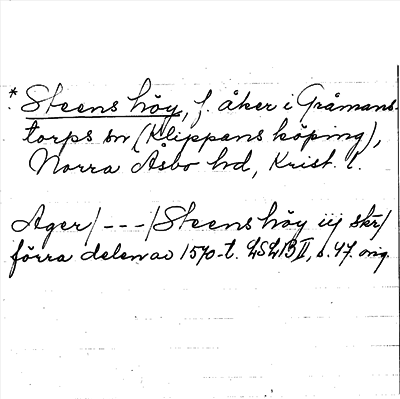 * Steens höy, f. åker i Gråmans-
torps sn (Klippans köping),
Norra Åsbo hd, Krist. l.
Ager/---/Steens höy iij skr/
förra delen av 1570-t. LSLB II, s. 47. orig.